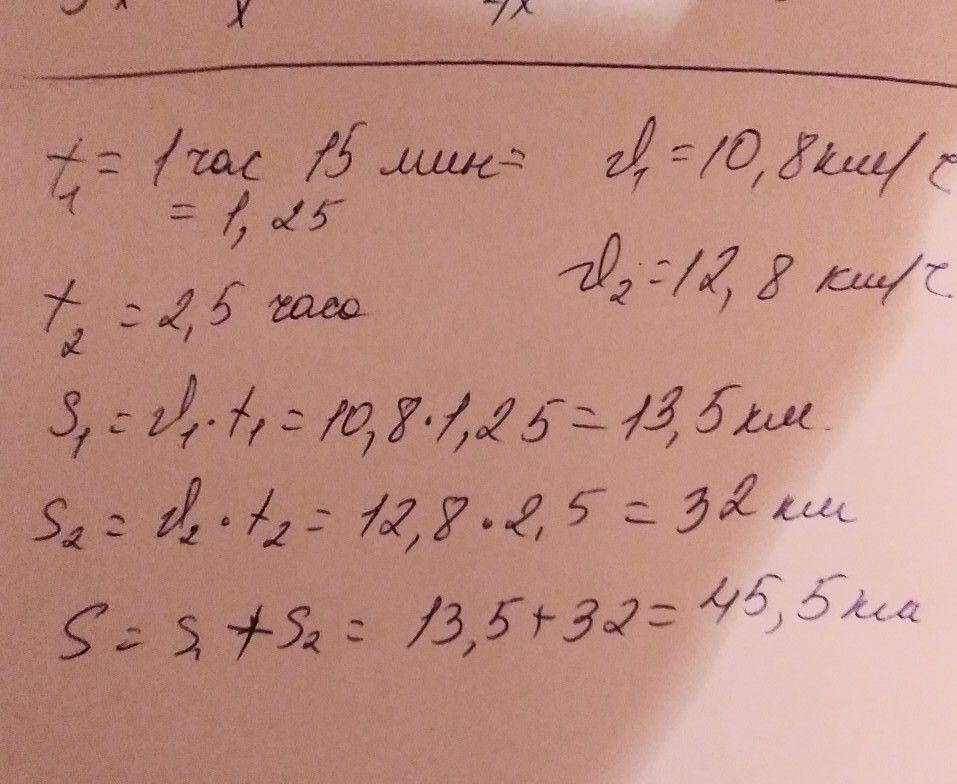 t₁ = 1 час 15 мин = v₁ = 10,8 км/ч
= 1,25
v₂ = 12,8 км/ч
t₂ = 2,5 часа
S₁ = v₁ · t₁ = 10,8 · 1,25 = 13,5 км.
S₂ = v₂ · t₂ = 12,8 · 2,5 = 32 км
S = S₁ + S₂ = 13,5 + 32 = 45,5 км